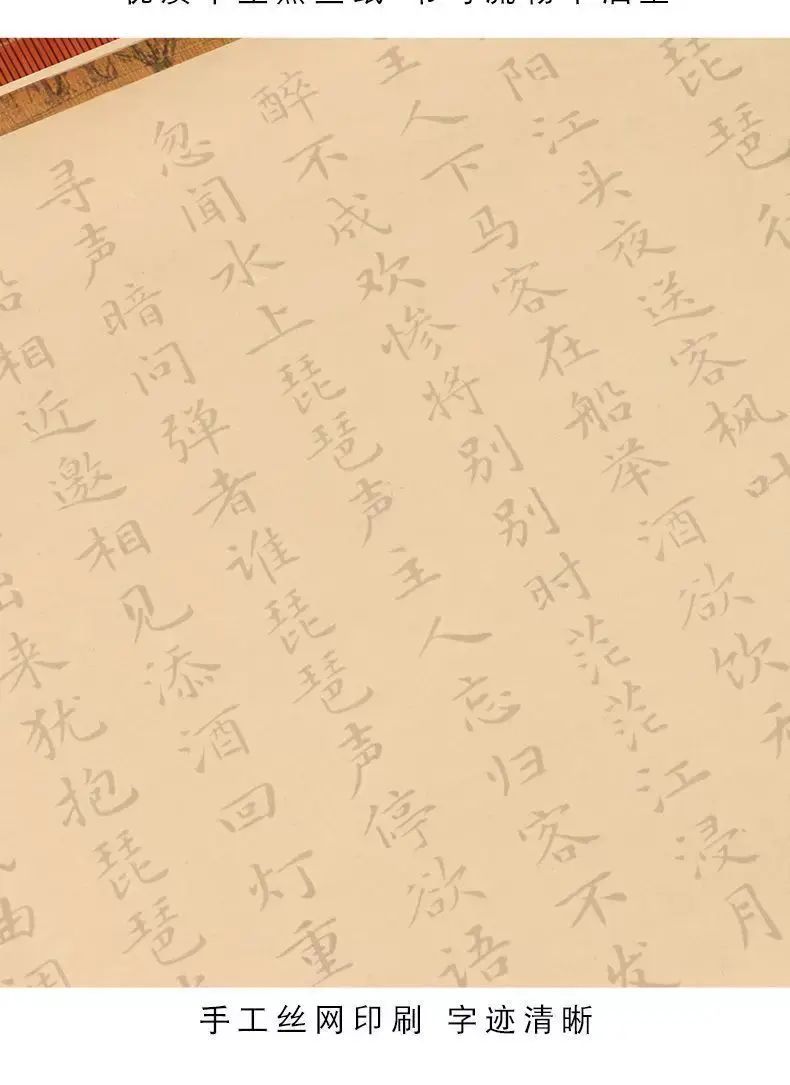 琵琶行
阳江头夜送客枫叶
主人下马客在船举酒欲饮无
醉不成欢惨将别别时茫茫江浸月
忽闻水上琵琶声主人忘归客不发
寻声暗问弹者谁琵琶声停欲语
船相近邀相见添酒回灯重
出来犹抱琵琶
曲调
手工丝网印刷 字迹清晰